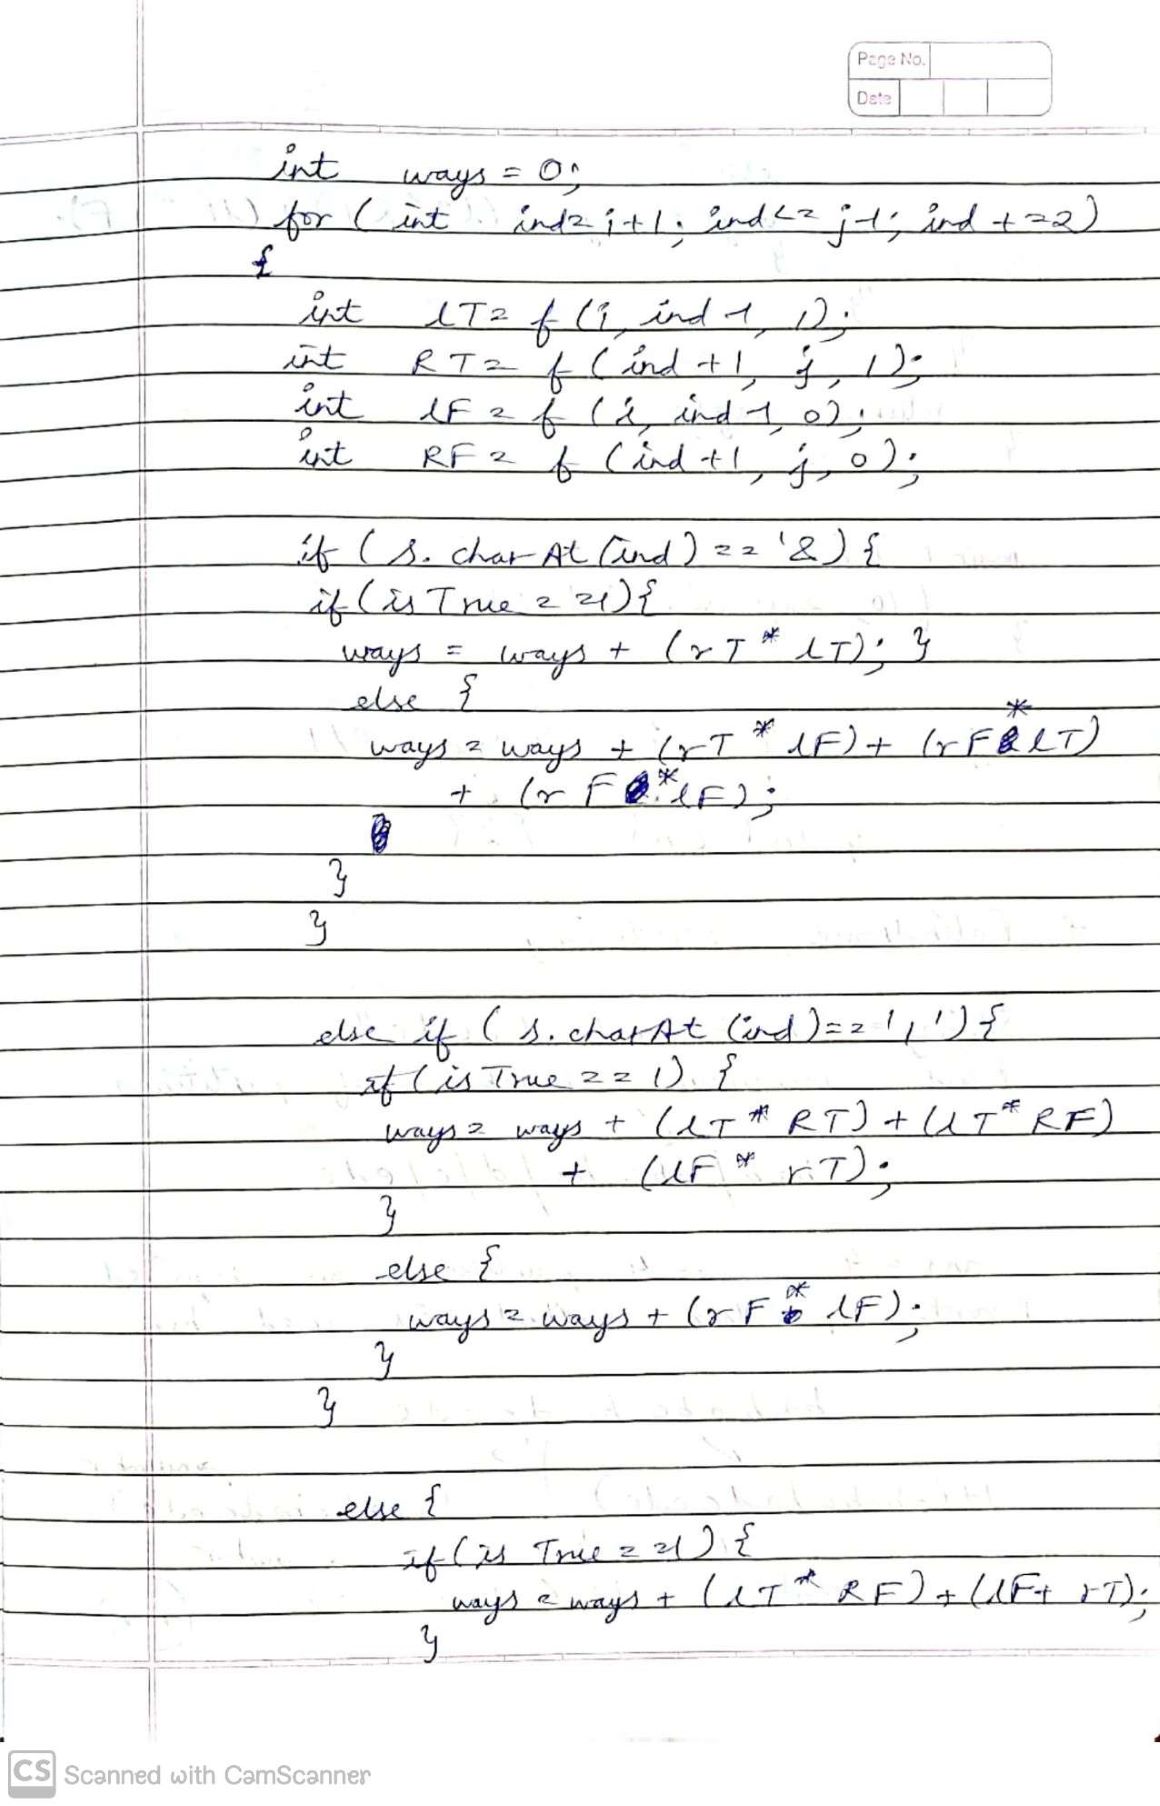 Page No.
Date
int ways = 0;
for ( int ind= i+1; ind <= j-1; ind +=2)
{
int lT= f (i, ind-1, 1);
int RT= f (ind +1, j, 1);
int lF = f (i, ind-1, 0);
int RF = f (ind +1, j, 0);
if ( s. char At (ind) == '&) {
if (is True ==1){
ways = ways + (rT * lT); }
else {
ways = ways + (rT * lF) + (rF * lT)
+ (rF * lF);
}
}
else if ( s. charAt (ind) == '|') {
if (is True == 1) {
ways = ways + (lT * RT) + (lT * RF)
+ (lF * rT);
}
else {
ways = ways + (rF * lF);
}
}
else {
if (is True ==1) {
ways = ways + (lT * RF) + (lF+ rT);
}
CS Scanned with CamScanner